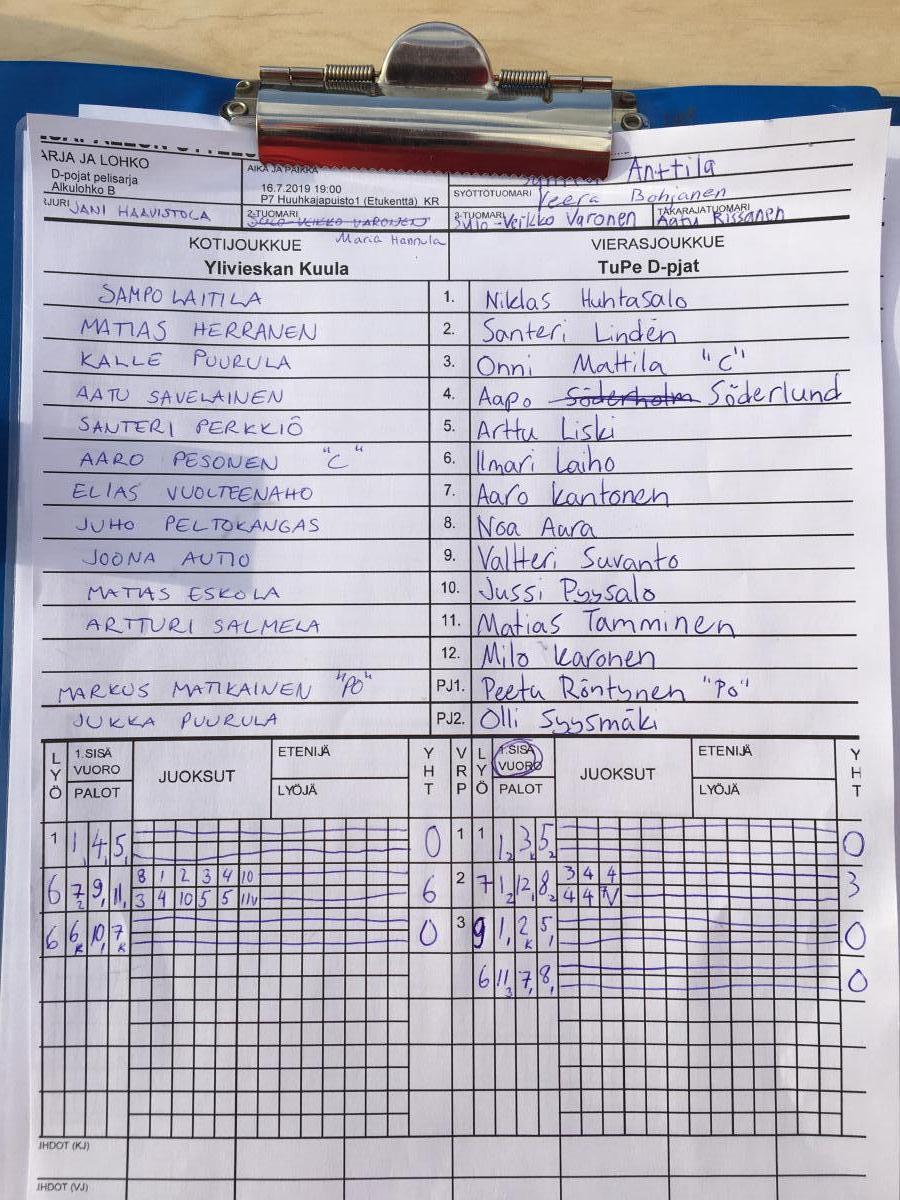 ARJA JA LOHKO
D-pojat pelisarja
Alkulohko B
AIKA JA PAIKKA
16.7.2019 19:00
P7 Huuhkajapuisto1 (Etukenttä) KR
Anttila
SYÖTTÖTUOMARI Veera Bohjanen
RJURI JANI HAAVISTOLA
2-TUOMARI SULO-VEIKKO VARONEN
3-TUOMARI Sulo-Veikko Varonen
TAKARAJATUOMARI Aatu Rissanen
KOTIJOUKKUE Maria Hannula VIERASJOUKKUE
Ylivieskan Kuula TuPe D-pjat
SAMPO LAITILA 1. Niklas Huhtasalo
MATIAS HERRANEN 2. Santeri Lindén
KALLE PUURULA 3. Onni Mattila "C"
AATU SAVELAINEN 4. Aapo Söderholm Söderlund
SANTERI PERKKIÖ 5. Arttu Liski
AARO PESONEN "C" 6. Ilmari Laiho
ELIAS VUOLTEENAHO 7. Aaro Kantonen
JUHO PELTOKANGAS 8. Noa Aara
JOONA AUTIO 9. Valtteri Suvanto
MATIAS ESKOLA 10. Jussi Pyysalo
ARTTURI SALMELA 11. Matias Tamminen
12. Milo Karonen
MARKUS MATIKAINEN "PO" PJ1. Peetu Röntynen "Po"
JUKKA PUURULA PJ2. Olli Syysmäki
LYÖ 1.SISÄ VUORO PALOT JUOKSUT ETENIJÄ LYÖJÄ YHT VRP LYÖ 1.SISÄ VUORO PALOT JUOKSUT ETENIJÄ LYÖJÄ YHT
1 1, 4, 5, 0 1 1 1₂ 3ₖ 5₂ 0
8 1 2 3 4 10 3 4 4
6 7₂ 9, 11, 3 4 10 5 5 11V 6 2 7 1₂ 12, 8₂ 4 4 7V 3
6 6ₖ 10, 7ₖ 0 3 9 1, 2ₖ 5, 0
6 11₃ 7, 8, 0
JHDOT (KJ)
JHDOT (VJ)